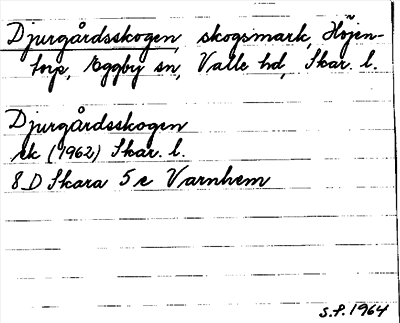 Djurgårdsskogen, skogsmark, Höjen-
torp, Eggby sn, Valle hd, Skar. l.
Djurgårdsskogen
ek (1962) Skar. l.
8 D Skara 5 e Varnhem
S.F. 1964